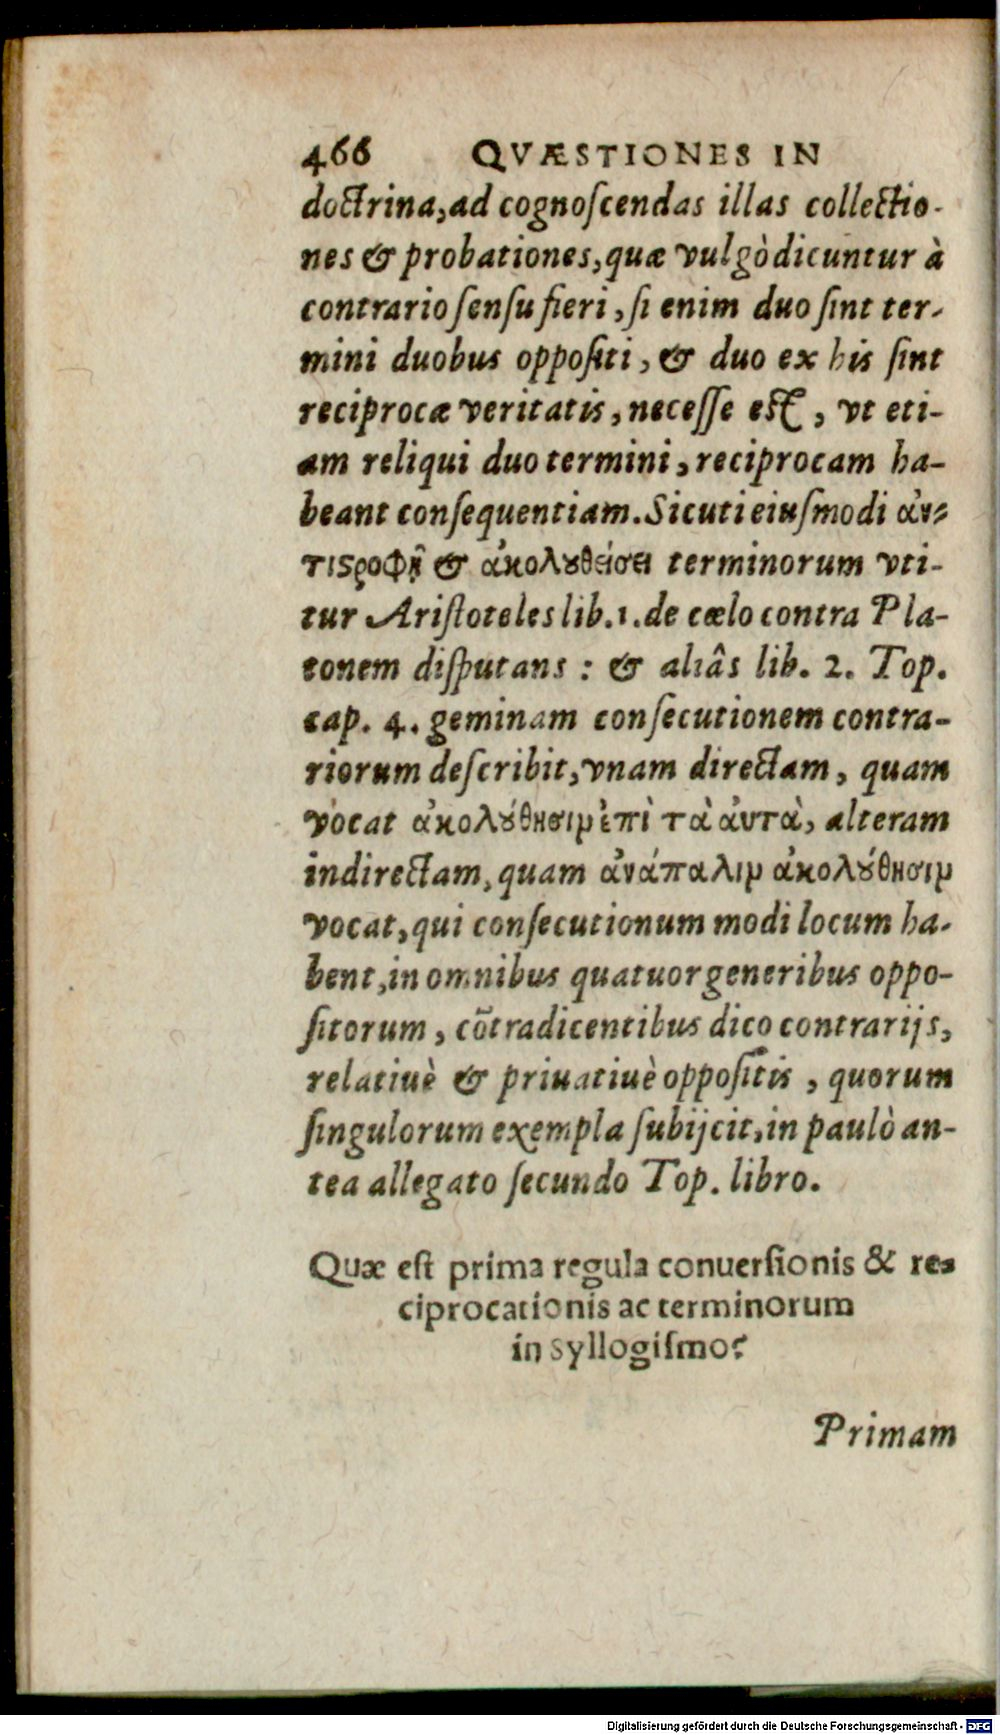 466 QVÆSTIONES IN
doctrina, ad cognoſcendas illas collectio-
nes & probationes, quæ vulgò dicuntur à
contrario ſenſu fieri, ſi enim duo ſint ter-
mini duobus oppoſiti, & duo ex his ſint
reciprocæ veritatis, neceſſe eſt, vt eti-
am reliqui duo termini, reciprocam ha-
beant conſequentiam. Sicuti eiuſmodi ἀν-
τιϛροφῇ & ἀκολȣθείσει terminorum vti-
tur Ariſtoteles lib. 1. de cælo contra Pla-
tonem diſputans : & aliâs lib. 2. Top.
cap. 4. geminam conſecutionem contra-
riorum deſcribit, vnam directam, quam
vocat ἀκολȣ́θησιν ἐπὶ τὰ ἀυτὰ, alteram
indirectam, quam ἀνάπαλιν ἀκολȣ́θησιν
vocat, qui conſecutionum modi locum ha-
bent, in omnibus quatuor generibus oppo-
ſitorum, cõtradicentibus dico contrarijs,
relatiuè & priuatiuè oppoſitis, quorum
ſingulorum exempla ſubijcit, in paulò an-
tea allegato ſecundo Top. libro.
Quæ eſt prima regula conuerſionis & re-
ciprocationis ac terminorum
in syllogiſmo?
Primam
Digitalisierung gefördert durch die Deutsche Forschungsgemeinschaft - DFG